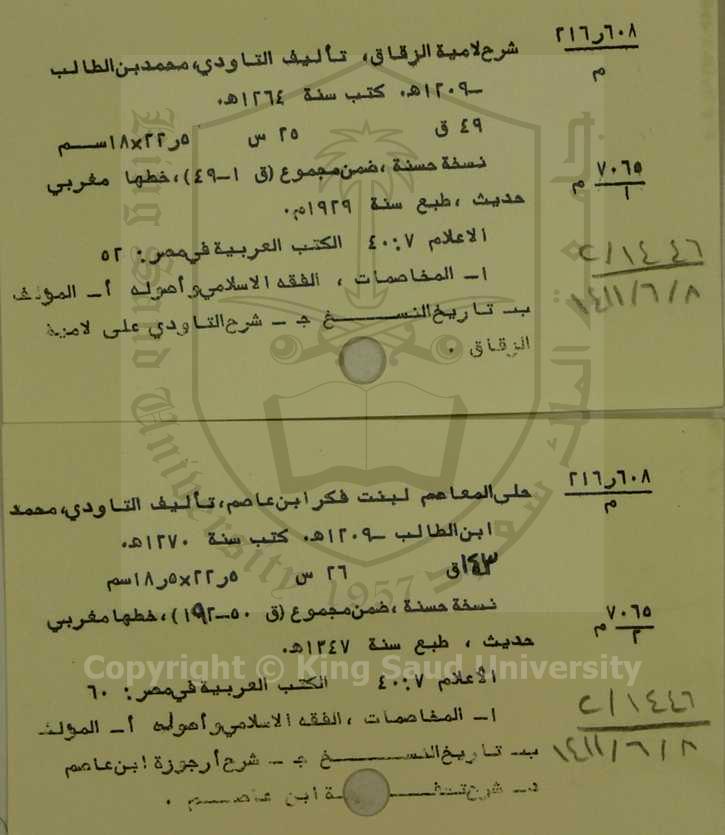 ٢١٦ر٦٠٨
م
شرح لامية الزقاق، تأليف التاودي، محمد بن الطالب
–١٢٠٩هـ. كتب سنة ١٢٦٤هـ.
٤٩ ق ٢٥ س ٢٢x١٨ر٥ســم
٧٠٦٥ م
١
نسخة حسنة ، ضمن مجموع (ق ١–٤٩)، خطها مغربي
حديث ، طبع سنة ١٩٢٩م.
الاعلام ٧: ٤٠ الكتب العربية في مصر: ٥٢
١ــ المخاصمات ، الفقه الاسلامي وأصوله أ ــ المؤلف
ب ــ تاريخ النســـــخ جـ ــ شرح التاودي على لامية
الزقاق .
١٤٤٦/٢
١٤١١/٦/٨
٢١٦ر٦٠٨
م
حلى المعاصم لبنت فكر ابن عاصم، تأليف التاودي، محمد
ابن الطالب –١٢٠٩هـ. كتب سنة ١٢٧٠هـ.
١٤٣ق ٢٦ س ٢٢ر٥x١٨ر٥سم
٧٠٦٥ م
٢
نسخة حسنة ، ضمن مجموع (ق ٥٠–١٩٢)، خطها مغربي
حديث ، طبع سنة ١٣٤٧هـ.
الأعلام ٧: ٤٠ الكتب العربية في مصر: ٦٠
١ــ المخاصمات ، الفقه الاسلامي وأصوله أ ــ المؤلف
ب ــ تاريخ النســـــخ جـ ــ شرح أرجوزة ابن عاصم
د ــ شرح تحفـــة ابن عاصـــم .
١٤٤٦/٢
١٤١١/٦/٨
Copyright © King Saud University
King Saud University
1957